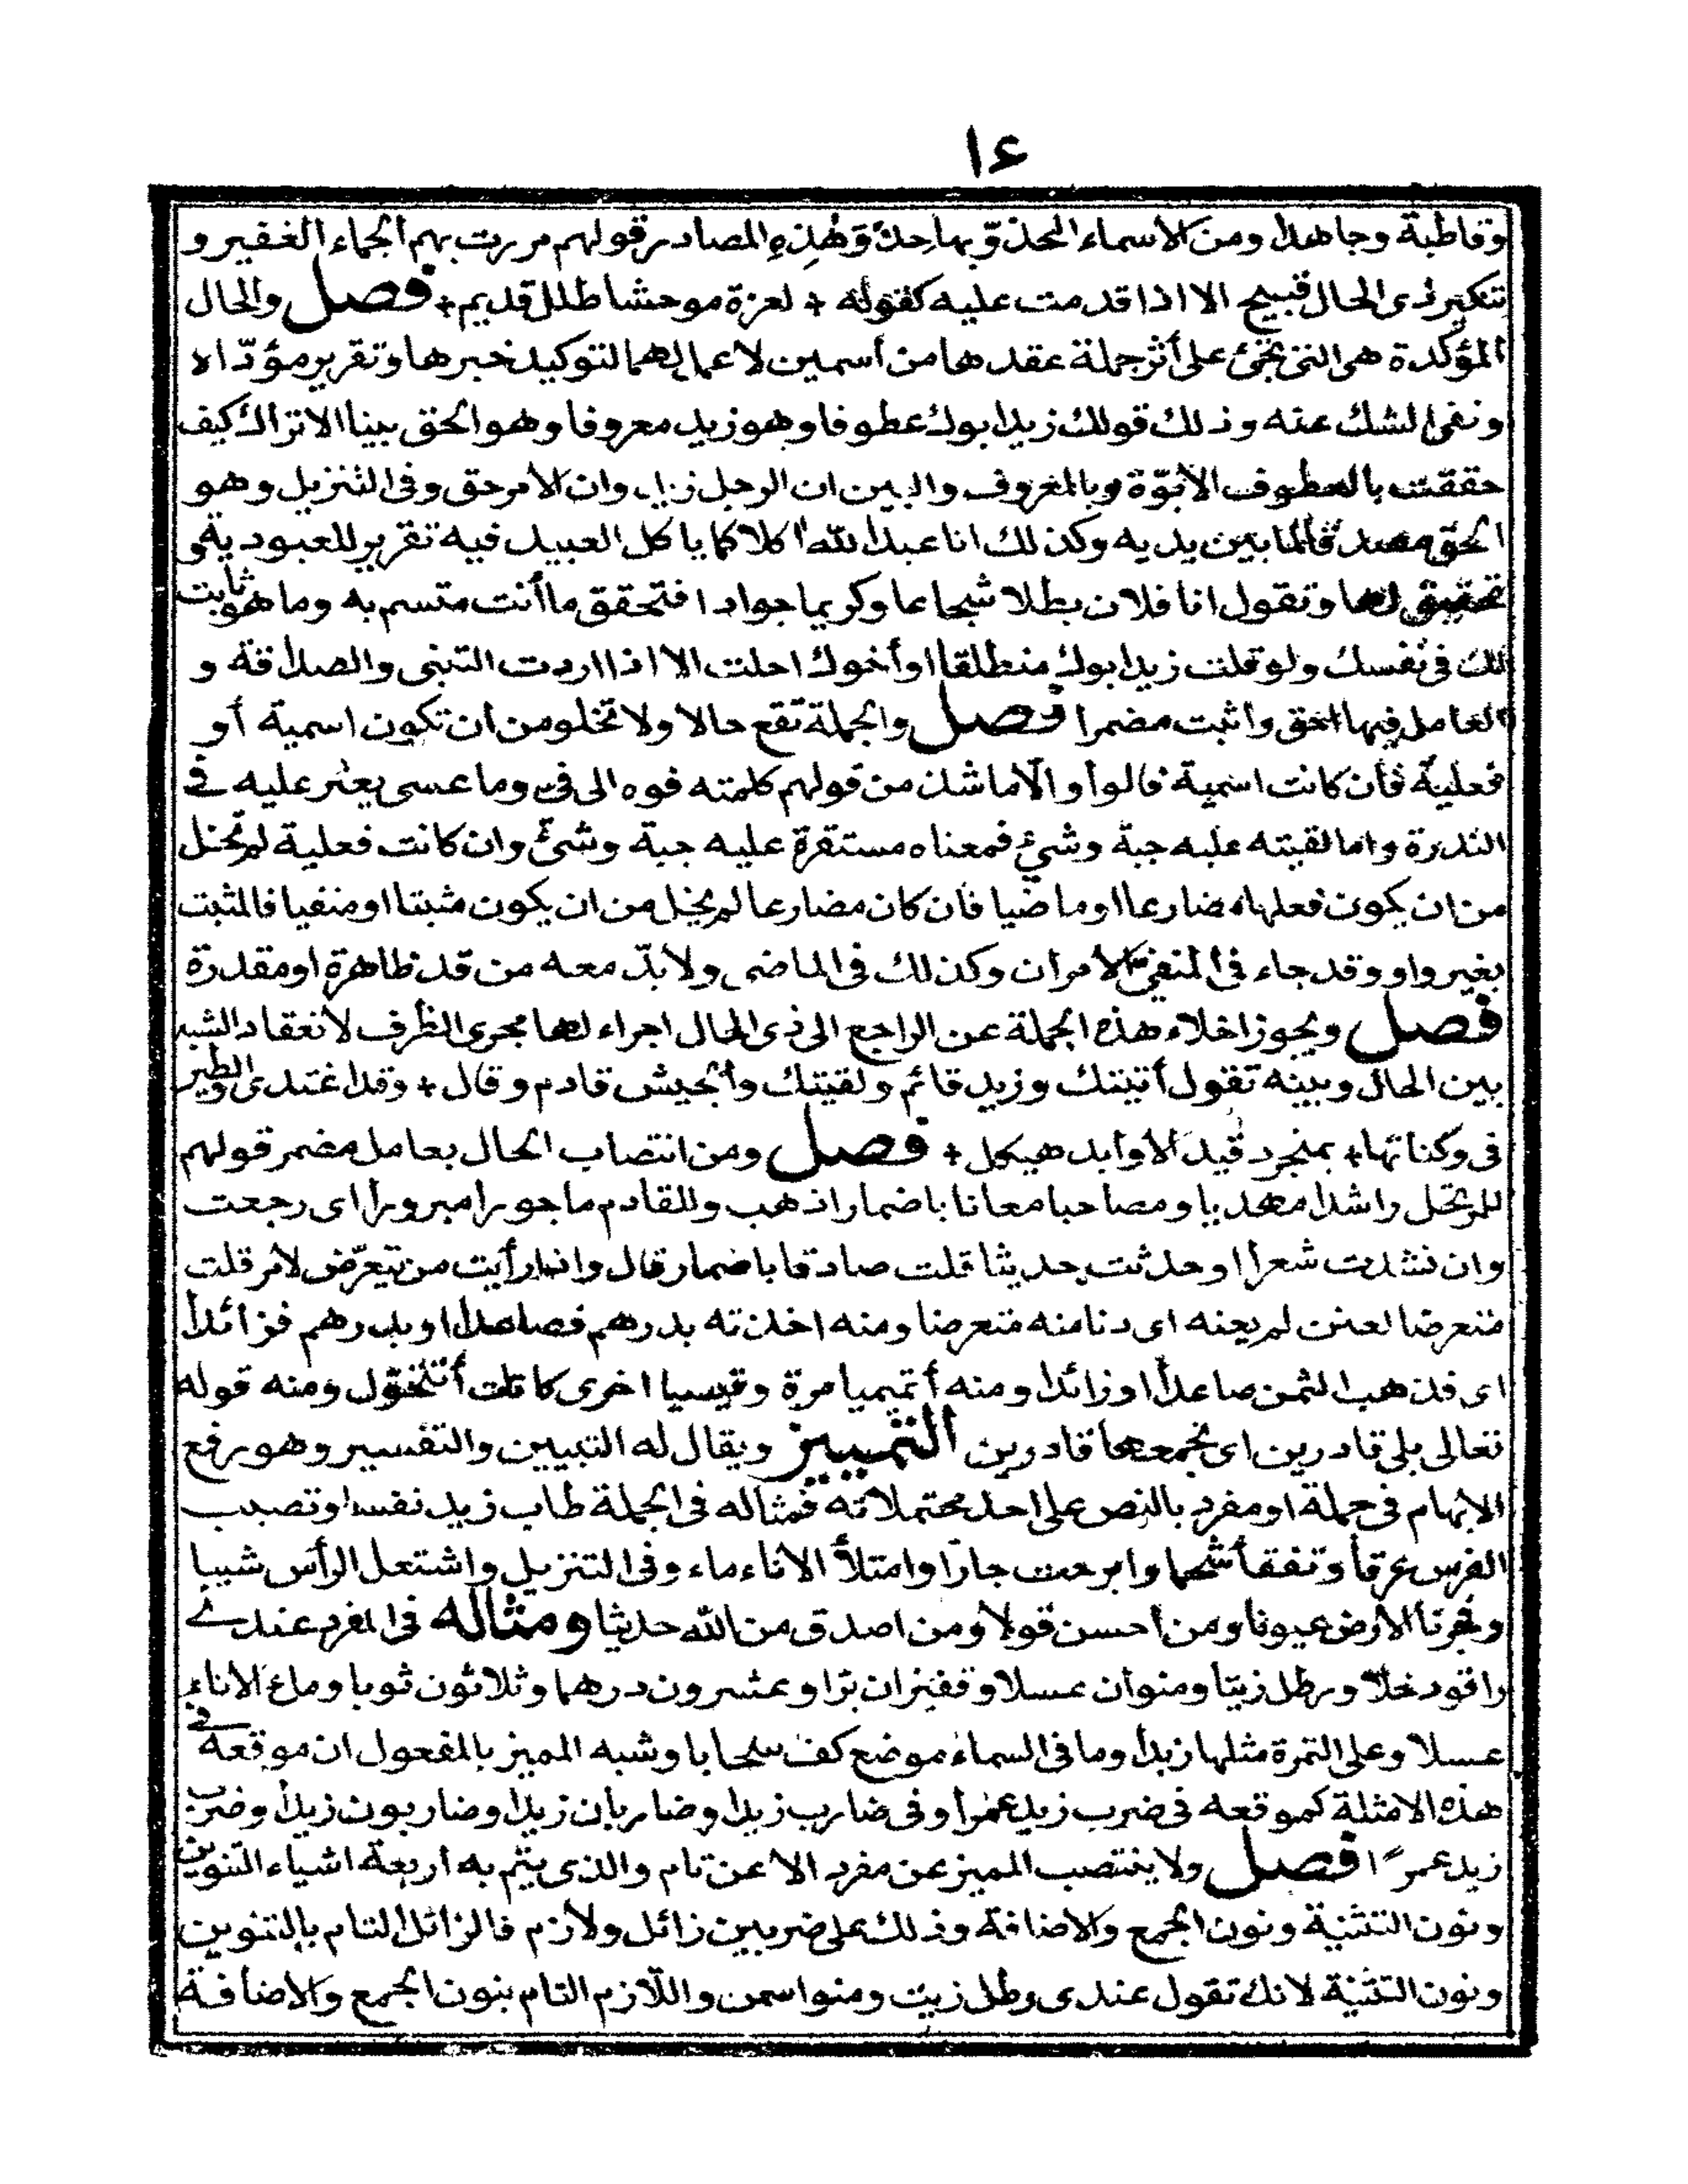 ١٤
وقاطبة وجاهدا ومن الأسماء المحذوّ بها حذوَ هٰذِهِ المصادر قولهم مررت بهم الجماء الغفير و
تنكير ذى الحال قبيح الا اذا قدمت عليه كقوله + لعزة موحشا طلل قديم + فصل والحال
المؤكدة هى التى تجئ على أثر جملة عقدها من أسمين لا عمل لهما لتوكيد خبرها وتقرير مؤدّاه
ونفى الشك عنه وذلك قولك زيد ابوك عطوفا وهو زيد معروفا وهو الحق بينا الا تراك كيف
حققت بالعطوف الأبوّة وبالمعروف والبين ان الرجل زيد وان الأمر حق وفى التنزيل وهو
الحق مصدقا لما بين يديه وكذلك انا عبد الله اكلا كما يا كل العبيد فيه تقرير للعبودية و
تحقيق لها وتقول انا فلان بطلا شجاعا وكريما جوادا فتحقق ما أنت متسم به وما هو ثابت
لك فى نفسك ولو قلت زيد ابوك منطلقا او أخوك احلت الا اذا اردت التبنى والصداقة و
العامل فيها احق واثبت مضمرا فصل والجملة تقع حالا ولا تخلو من ان تكون اسمية أو
فعلية فأن كانت اسمية فالواو الّا ما شذ من قولهم كلمته فوه الى فى وما عسى يعثر عليه فى
الندرة واما لقيته عليه جبة وشي فمعناه مستقرة عليه جبة وشئ وان كانت فعلية لم تخل
من ان يكون فعلها مضارعا او ماضيا فان كان مضارعا لم يخل من ان يكون مثبتا او منفيا فالمثبت
بغير واو وقد جاء فى المنفى الأمران وكذلك فى الماضى ولا بدّ معه من قد ظاهرة او مقدرة
فصل ويجوز اخلاء هذه الجملة عن الراجع الى ذى الحال اجراء لها مجرى الظرف لأنعقاد الشبه
بين الحال وبينه تقول أتيتك وزيد قائم ولقيتك والجيش قادم وقال + وقد اغتدى والطير
فى وكناتها + بمنجرد قيد الأوابد هيكل + فصل ومن انتصاب الحال بعامل مضمر قولهم
للمرتحل راشدا مهديا ومصاحبا معانا باضمار اذهب وللقادم ماجورا مبرورا اى رجعت
وان نشدت شعرا او حدثت حديثا قلت صادقا باضمار قال واذا رأيت من يتعرّض لأمر قلت
متعرضا لعنن لم يعنه اى دنا منه متعرضا ومنه اخذته بدرهم فصاعدا او بدرهم فزائدا
اى فذهب الثمن صاعدا او زائدا ومنه أتميميا مرة وقيسيا اخرى كا قلت أتتحول ومنه قوله
تعالى بلى قادرين اى نجمعها قادرين التمييز ويقال له التبيين والتفسير وهو رفع
الابهام فى جملة او مفرد بالنص على احد محتملاته فمثاله فى الجملة طاب زيد نفسا وتصبب
الفرس عرقا وتفقأ شحما وابرحت جارا وامتلأ الاناء ماء وفى التنزيل واشتعل الرأس شيبا
وفجرنا الأرض عيونا ومن أحسن قولا ومن اصدق من الله حديثا ومثاله فى المفرد عندى
راقود خلّا ورطل زيتا ومنوان عسلا وقفيزان برّا وعشرون درهما وثلاثون ثوبا وملء الاناء
عسلا وعلى التمرة مثلها زبدا وما فى السماء موضع كف سحابا وشبه المميز بالمفعول ان موقعه فى
هذه الامثلة كموقعه فى ضرب زيد عمرا وفى ضارب زيدا وضاربان زيدا وضاربون زيدا وضرب
زيد عمرًا فصل ولا ينتصب المميز عن مفرد الا عن تام والذى يتم به اربعة اشياء التنوين
ونون التثنية ونون الجمع والاضافة وذلك على ضربين زائل ولأزم فالزائل التام بالتنوين
ونون التثنية لانك تقول عندى رطل زيت ومنوا سمن واللّازم التام بنون الجمع والاضافة